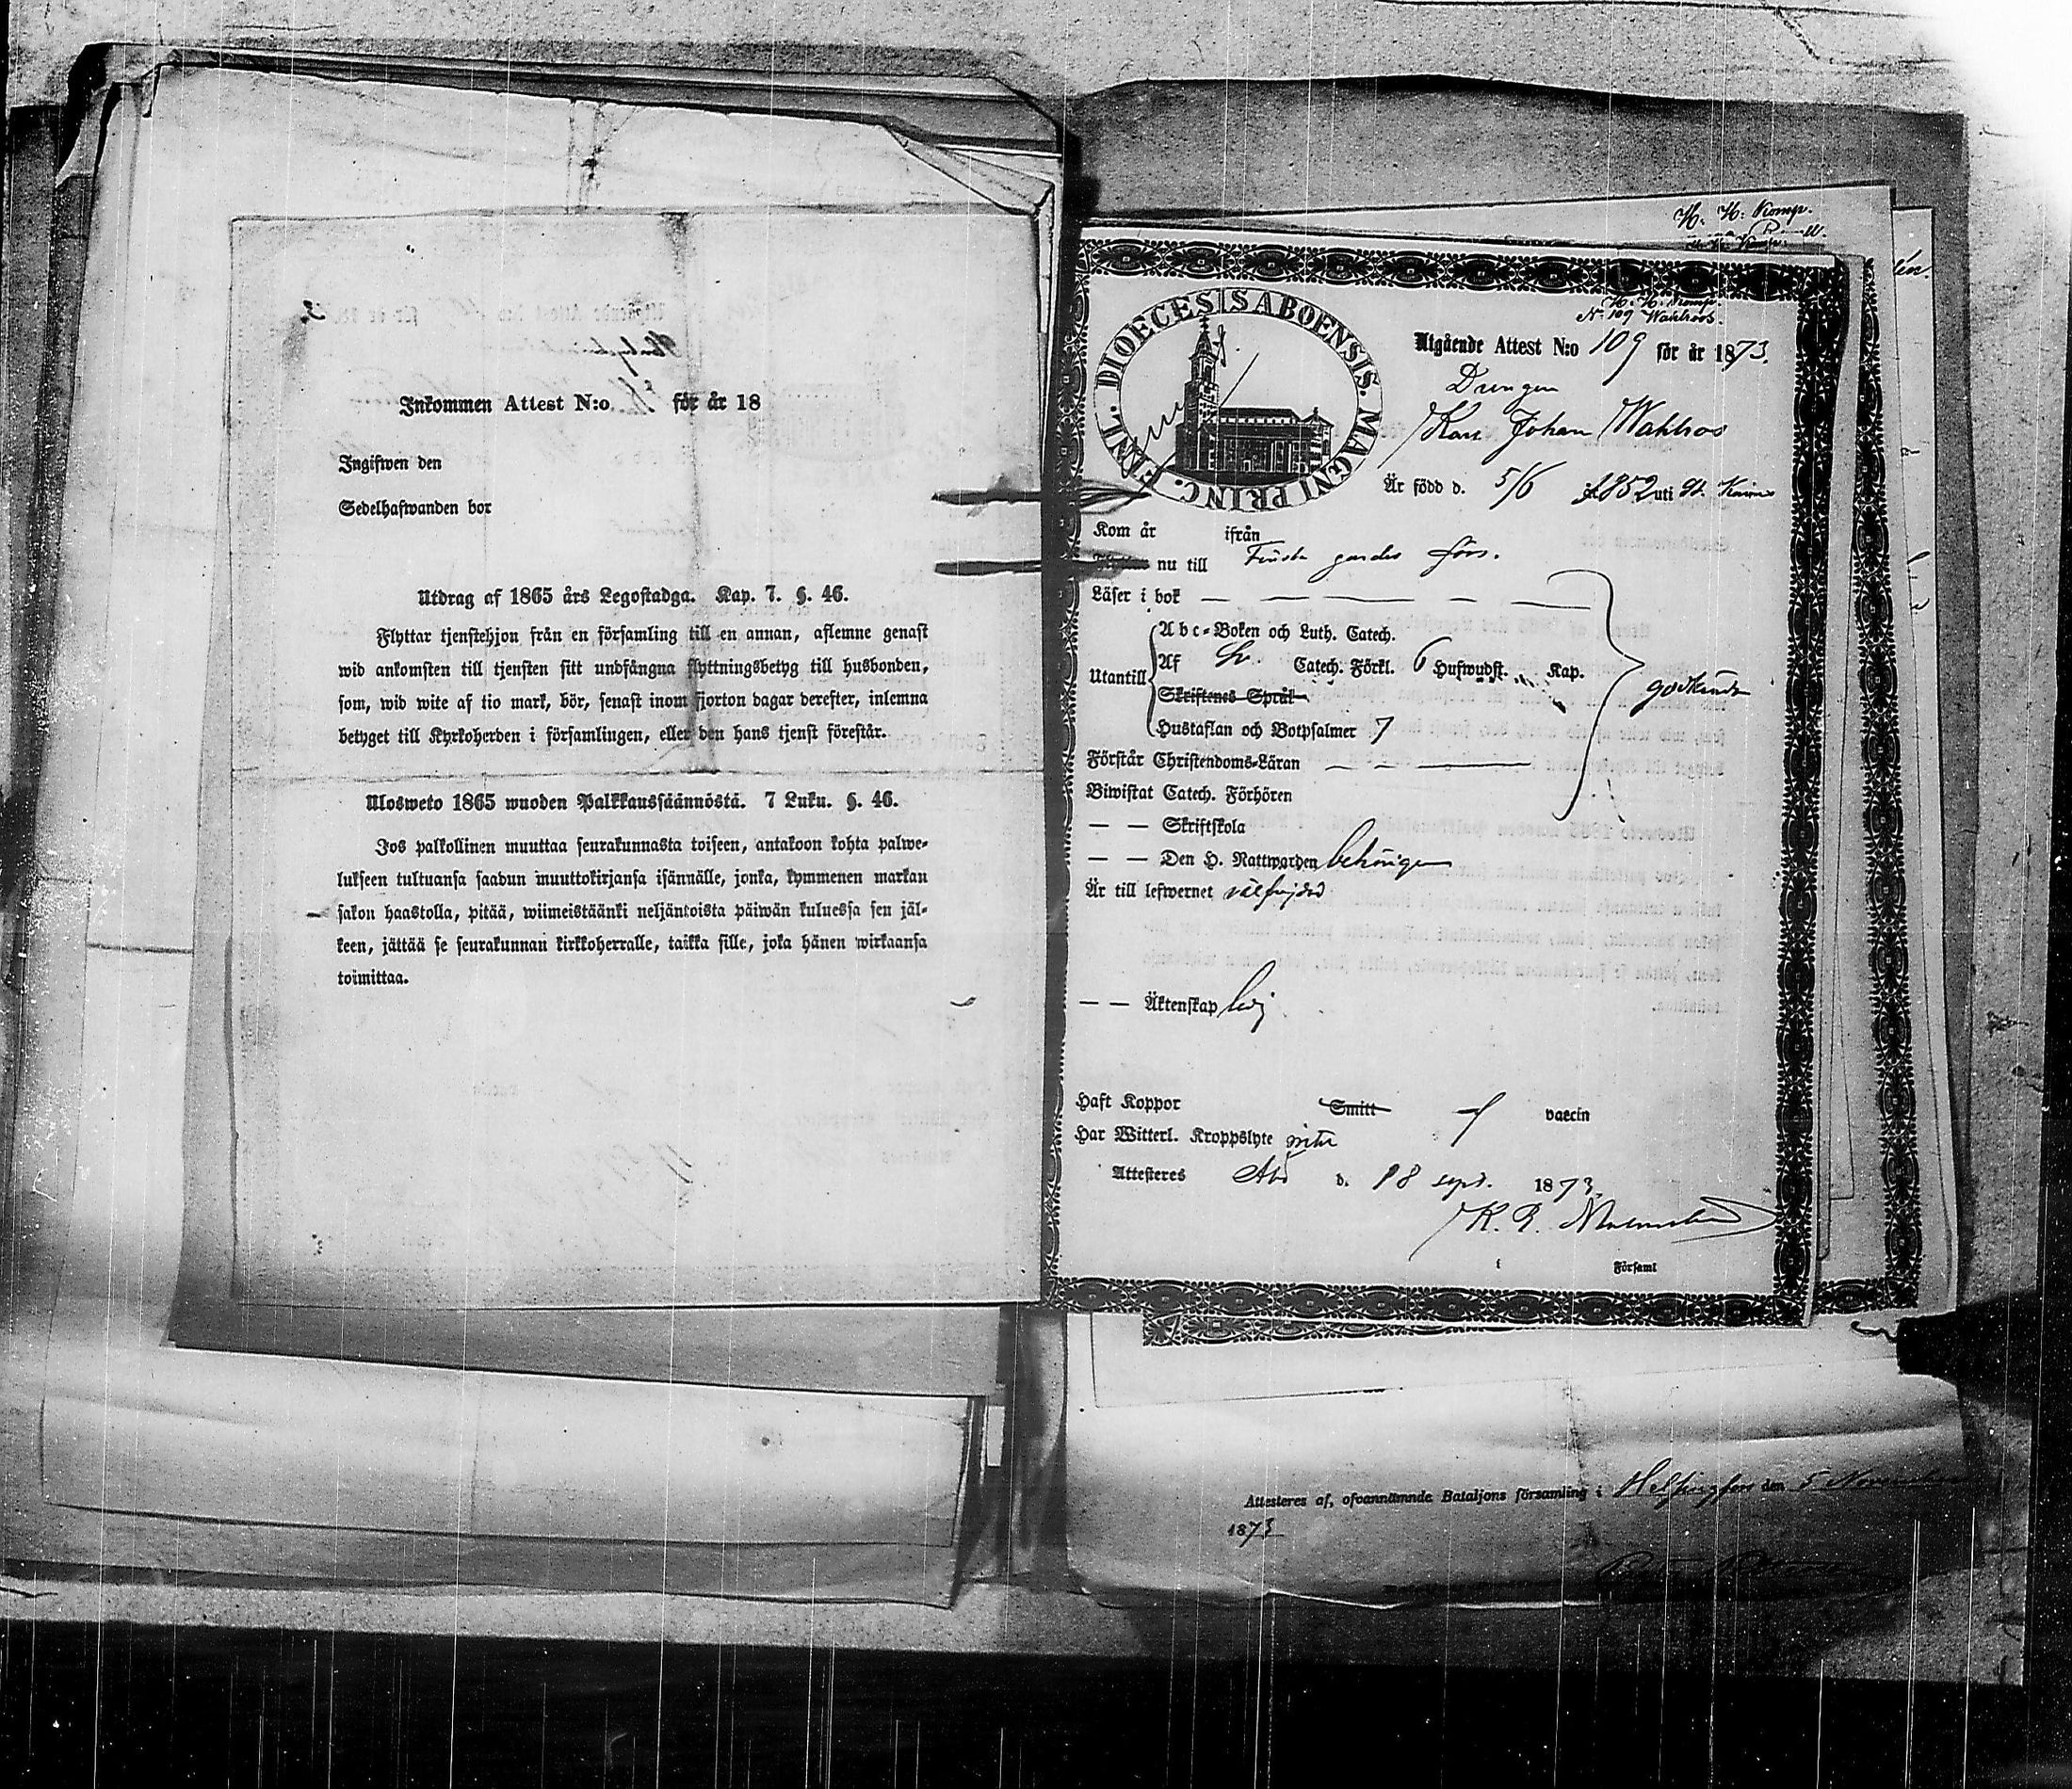 Inkommen Attest N:o för år 18
Ingifwen den
Sedelhafwanden bor
Utdrag af 1865 års Legostadga. Kap. 7. §. 46.
Flyttar tjenstehjon från en församling till en annan, aflemne genast
wid ankomsten till tjensten sitt undfångna flyttningsbetyg till husbonden,
som, wid wite af tio mark, bör, senast inom fjorton dagar derefter, inlemna
betyget till Kyrkoherden i församlingen, eller den hans tjenst förestår.
Ulosweto 1865 wuoden Palkkaussäännöstä. 7 Luku. §. 46.
Jos palkollinen muuttaa seurakunnasta toiseen, antakoon kohta palwe-
lukseen tultuansa saadun muuttokirjansa isännälle, jonka, kymmenen markan
sakon haastolla, pitää, wiimeistäänki neljäntoista päiwän kuluessa sen jäl-
keen, jättää se seurakunnan kirkkoherralle, taikka sille, joka hänen wirkaansa
toimittaa.
H. H. Komp.
H. H. Komp.
No 109 Wahlroos.
FINL. DIOECESIS ABOENSIS. MAGNI PRINC.
Utgående Attest N:o 109 för år 1873.
Drengen
Karl Johan Wahlros
Är född d. 5/6 1852 uti St. Karins
Kom år ifrån
nu till Finska gardes förs.
Läser i bok
Abc-Boken och Luth. Catech.
Utantill Af Sv. Catech. Förkl. 6 Hufwudst. Kap.
Skriftenes Språk
godkända
Hustaflan och Botpsalmer 7
Förstår Christendoms-Läran
Biwistat Catech. Förhören
— — Skriftskola
— — Den H. Nattwarden behörigen
Är till lefwernet välfrejdad
— — Äktenskap ledig
Haft Koppor Smitt vaccin
Har Witterl. Kroppslyte
Attesteres Åbo d. 18 sept. 1873.
K. R.
i Församl
Attesteres af, ofvannämnde Bataljons församling i Helsingfors den 5 November
1873